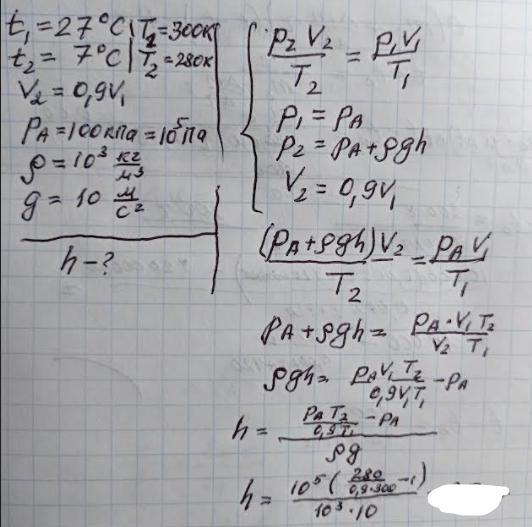 t₁ = 27°C | T₂ = 300К
t₂ = 7°C | T₂ = 280К
V₂ = 0,9V₁
P_A = 100 кПа = 10⁵ Па
ρ = 10³ кг/м³
g = 10 м/с²
h - ?
p₂V₂/T₂ = p₁V₁/T₁
p₁ = p_A
p₂ = p_A + ρgh
V₂ = 0,9V₁
(p_A + ρgh)V₂/T₂ = p_A V₁/T₁
p_A + ρgh = p_A · V₁ T₂/V₂ T₁
ρgh = p_A V₁ T₂/0,9V₁T₁ - p_A
h = (p_A T₂/0,9T₁ - p_A)/ρg
h = 10⁵(280/0,9·300 - 1)/10³·10